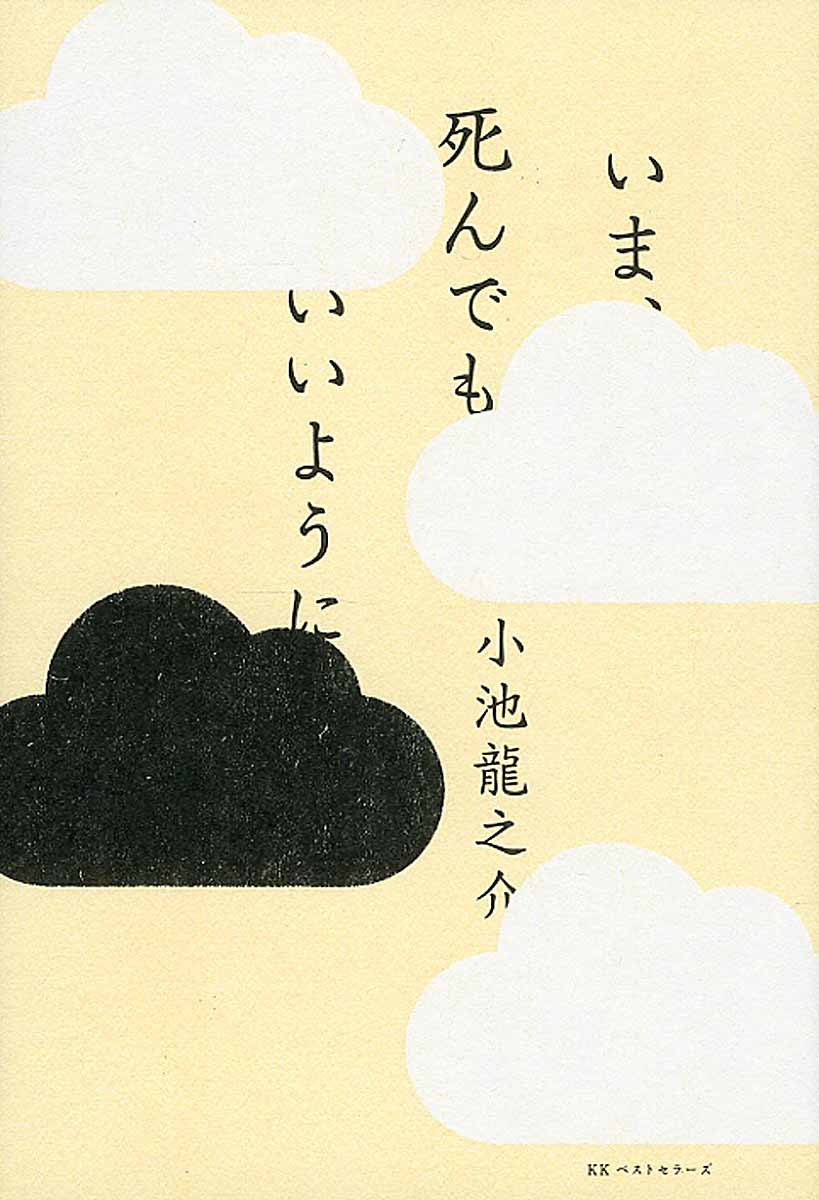 いま、
死んでも
いいように
小池龍之介
KKベストセラーズ